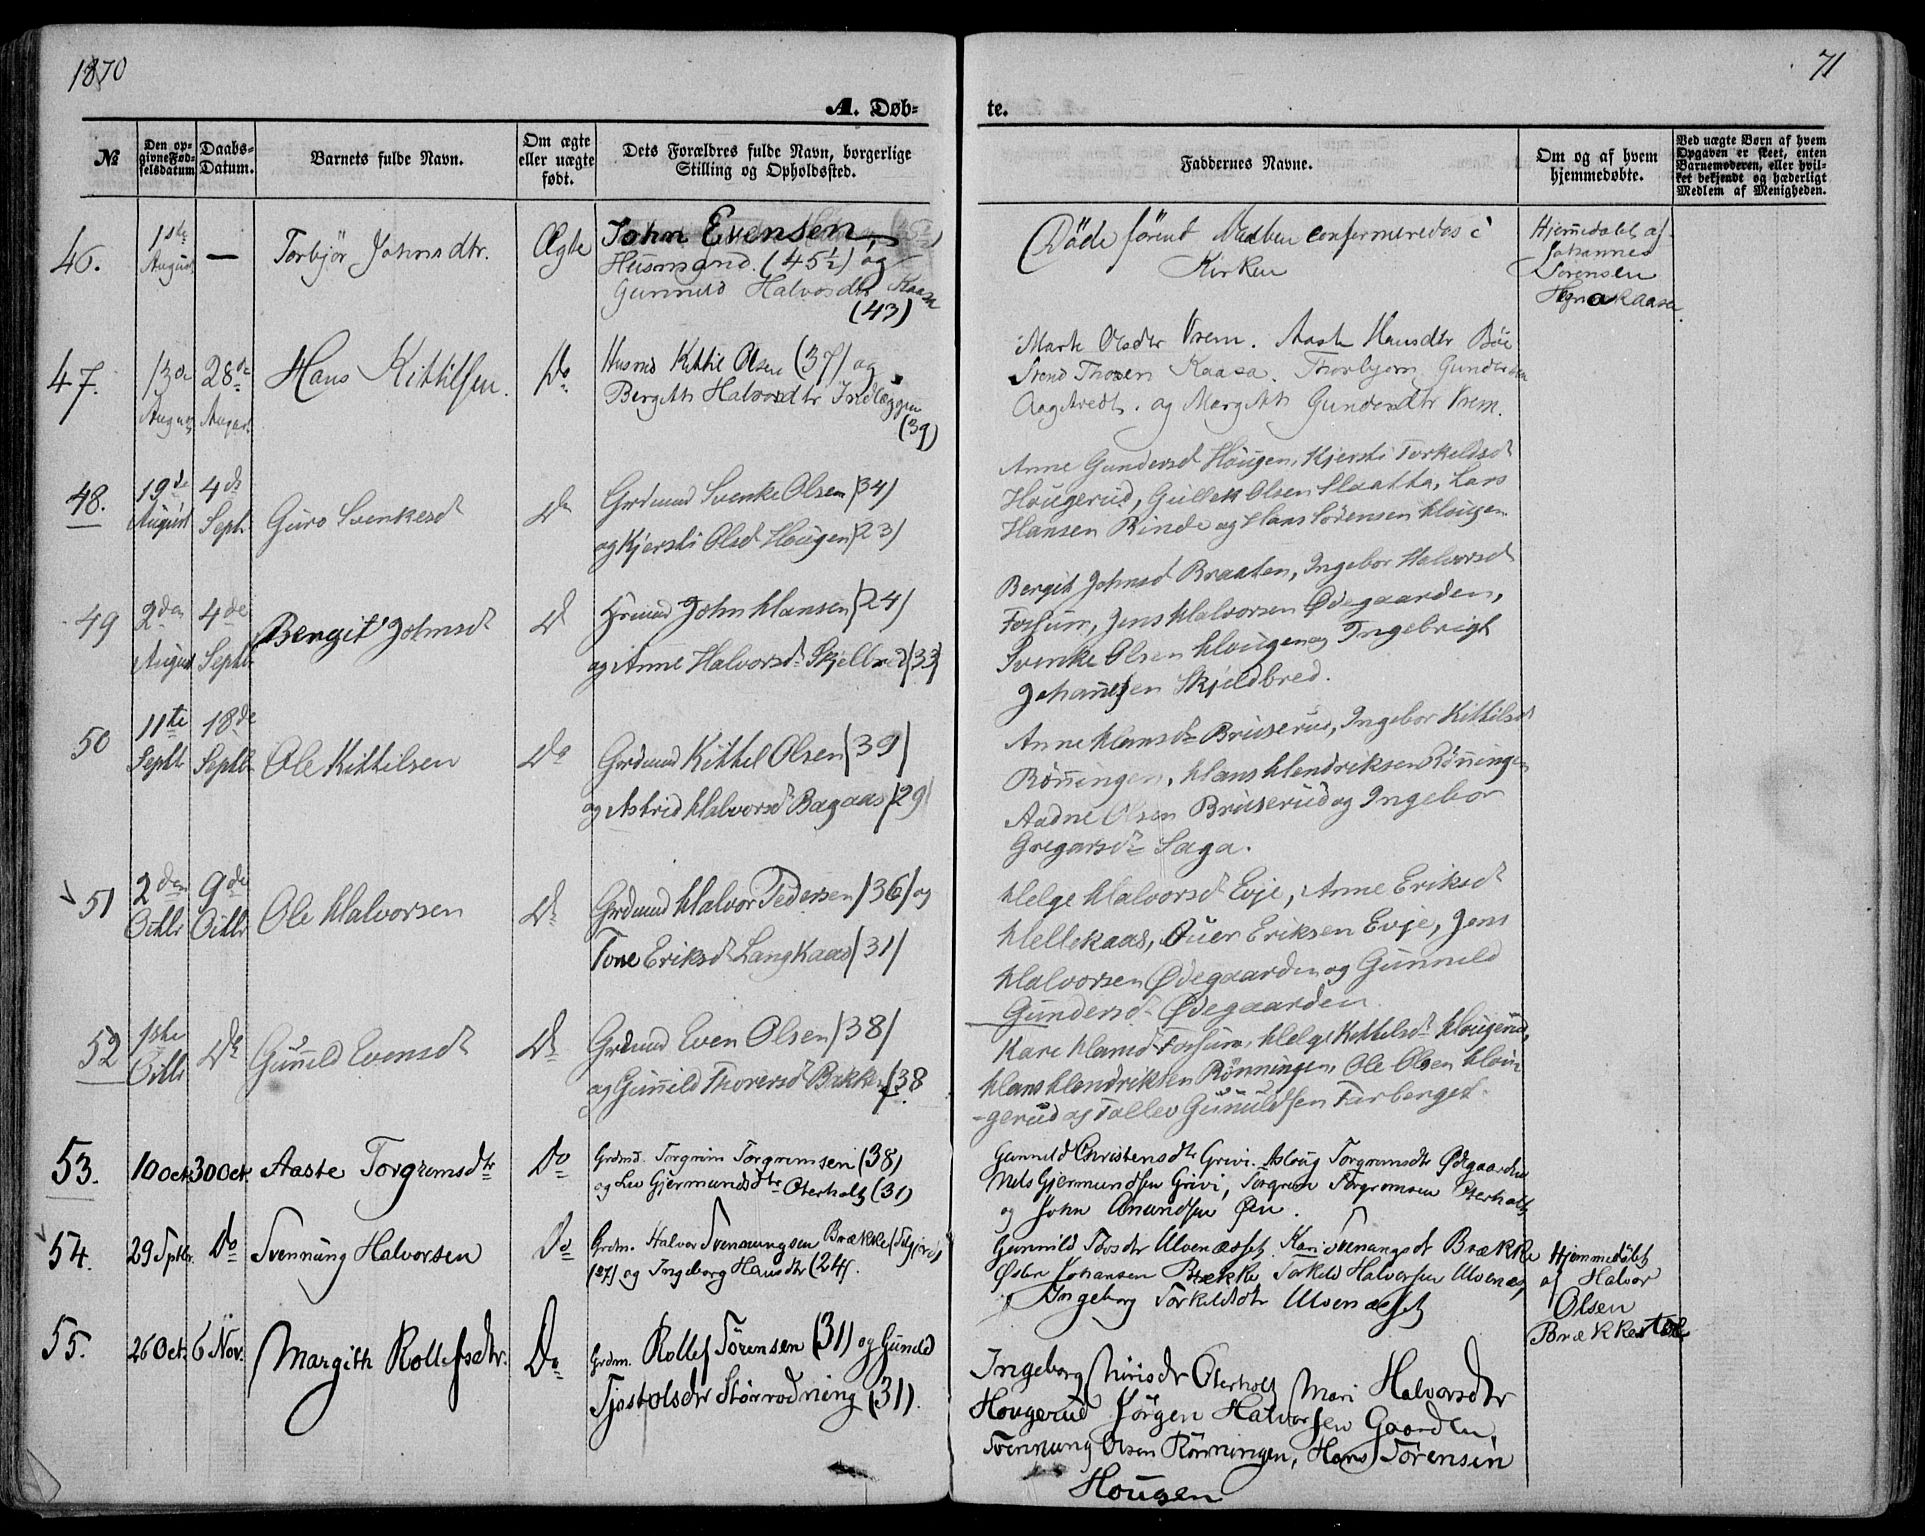 1870
71
A. Døb-
te.
№
Den op-
givne Fød-
selsdatum
Daabs-
Datum.
Barnets fulde Navn.
Om ægte
eller uægte
født.
Dets Forældres fulde Navn, borgerlige
Stilling og Opholdssted.
Faddernes Navne.
Om og af hvem
hjemmedøbte.
Ved uægte Børn af hvem
Opgaven er skeet, enten
Barnemoderen, eller hvil-
ket bekjendt og hæderligt
Medlem af Menigheden.
46.
1ste
August
—
Torbjør Johnsdtr.
Ægte
John Evensen,
Husmand. (45½) og
Gunnild Halvosdtr Kaasa
(43)
Døde førend Daaben confermeredes i
Kirken
Hjemmedøbt af
Johannes
Sorensen
47.
13de
August
28de
August
Hans Kittilsen.
Do
Husmd Kittil Olsen (37) og
Bergith Halvosdtr Indlæggen
(39)
Marte Olsdtr Vrem. Aaste Hansdtr Bøe
Svend Thosen Kaasa. Thorbjorn Gundersen
og Margith Gundesdtr Vrem.
48.
19de
August
4de
Septb
Guro Svenkesd
Do
Grdmnd Svenke Olsen (34)
og Kjersti Olsd Hougen (23)
Anne Gundersd Hougen, Kjersti Torkeldsd
Hougerud, Gullek Olsen Slaatta, Lars
Hansen Rinde og Hans Sørensen Hougen
49
2den
August
4de
Septb
Bergit Johnsd
Do
John Hansen (24)
og Anne Halvorsd Skjelbred (33)
Bergit Johnsd Braaten, Ingebor Halvorsd
Forsum, Jens Halvorsen Ødegaarden,
Svenke Olsen Hougen og Ingebrigt
Johannsen Skjeldbred.
50
11te
Septb
18de
Septb
Ole Kittilsen
Do
Grdmnd Kittel Olsen (39)
og Astrid Halvorsd Bagaas (29)
Anne Hansd Bruserud, Ingebor Kittilsd
Rønningen, Hans Hendriksen Rønningen
Aadne Olsen Bruserud og Ingebor
Gregarsd Saga.
51
2den
Octbr
9de
Octbr
Ole Halvorsen
Do
Grdmnd Halvor Pedersen (36) og
Tone Eriksd Langkaas (31)
Helge Halvorsd Evje, Anne Eriksd
Hellekaas, Ouer Eriksen Evje, Jens
Halvorsen Ødegaarden og Gunnild
Gundersd Ødegaarden
52
1ste
Octbr
Do
Gunnild Evensd
Do
Grdmnd Even Olsen (38)
og Gunnild Thorersd Bakken (38
Kare Hansd Forsum, Helge Kittelsd Hougerud,
Hans Hendriksen Rønningen, Ole Olsen Hou-
-gerud og Tallev Gunnuldsen Farberget
53.
10 Oct
30 Oct.
Aaste Torgrimsdtr
Do
Grdmd. Torgrim Torgrimsen (38)
og Liv Gjermundsdtr Oterholt (31)
Gunnild Christensdtr Grivi. Aslaug Torgrimsdtr Ødegaarden
Nels Gjermundsen Grivi, Torgrim Torgrimsen Oterholt
og John Amundsen Øen.
54.
29 Sptbr.
Do
Svennung Halvorsen
Do
Grdm. Halvor Svennungsen Brække
(27) og Ingeborg Hansdtr (24).
Gunnild Tosdtr Ulvenæsset, Kari Svenungsdt Brække
Østen Johansen Brække, Torkild Halvorsen Ulvenæs,
Ingeborg Torkildsdtr Ulvenæsset
Hjemmedøbt
af Halvor
Olsen
55.
26 Oct.
6 Nov.
Margith Rollefsdtr.
Do
Grdm. Rollef Sørensen (31) og Gunild
Tjostolsdtr Størrodning (31).
Ingeborg Oterholt Mari Halvorsdtr
Hougerud Jørgen Halvorsen Gaarden,
Svennung Olsen Rønningen, Hans Sørensen
Hougen